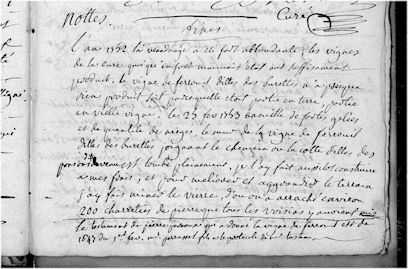 Nottes. Curé
fines
L'an 1752 la vendange a été fort abbondante, les vignes
de la cure quoique en fort mauvais état ont suffisament
produit. la vigne de ferrouil dittes des burettes n'a presque
rien produit soit parcequelle étoit partie en terre, partie
en vieille vigne. le 25 fev 1753 ensuitte de fortes gelées
et de quantité de neiges, le mur de la vigne de ferrouil
dittes des burettes joignant le chemin ou la cotte dittes des
est tombé plainement, je l'ay fait aussitot construire
a mes frais, et pour meliorer et aggrandir le terrain
j'ay fait miner le vierre, d'ou on a arraché environ
200 charretées de pierre que tous les voisins y avoient mis
le testament de pierre qui a donné la vigne de ferrouil est de
1547 du 1er fev.